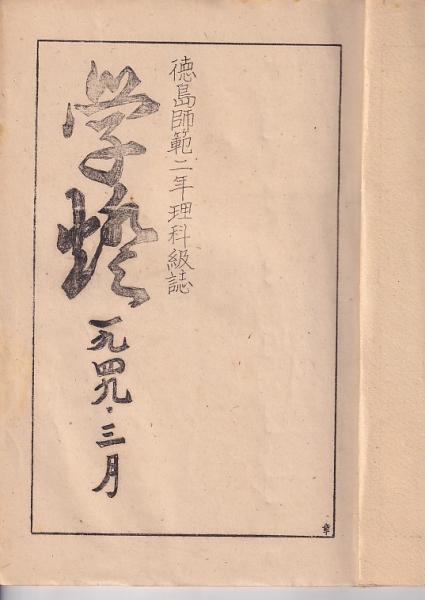 徳島師範二年理科級誌
学燈
一九四九・三月
章